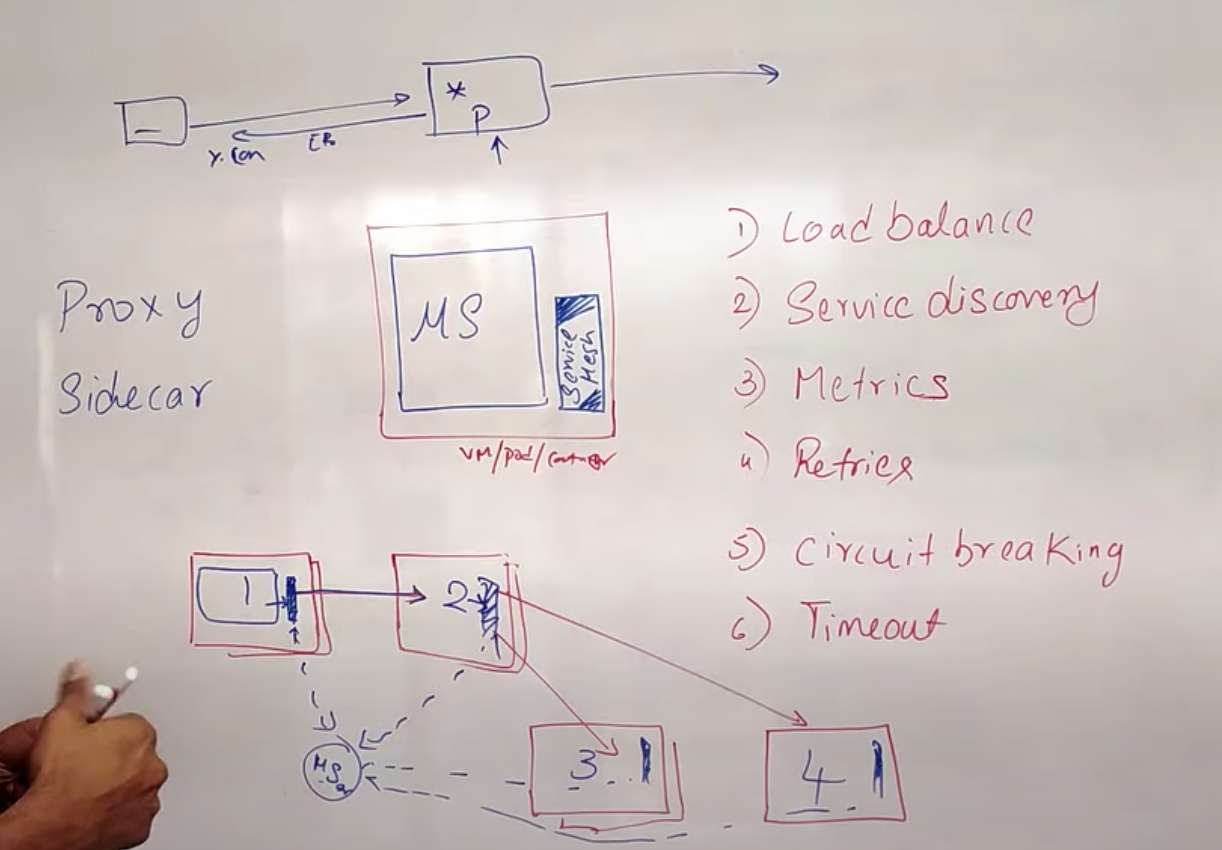 *
P
Y. Con
Proxy
Sidecar
MS
Service Mesh
VM/pod/container
1) Load balance
2) Service discovery
3) Metrics
4) Retries
5) Circuit breaking
6) Timeout
1
2
3
4